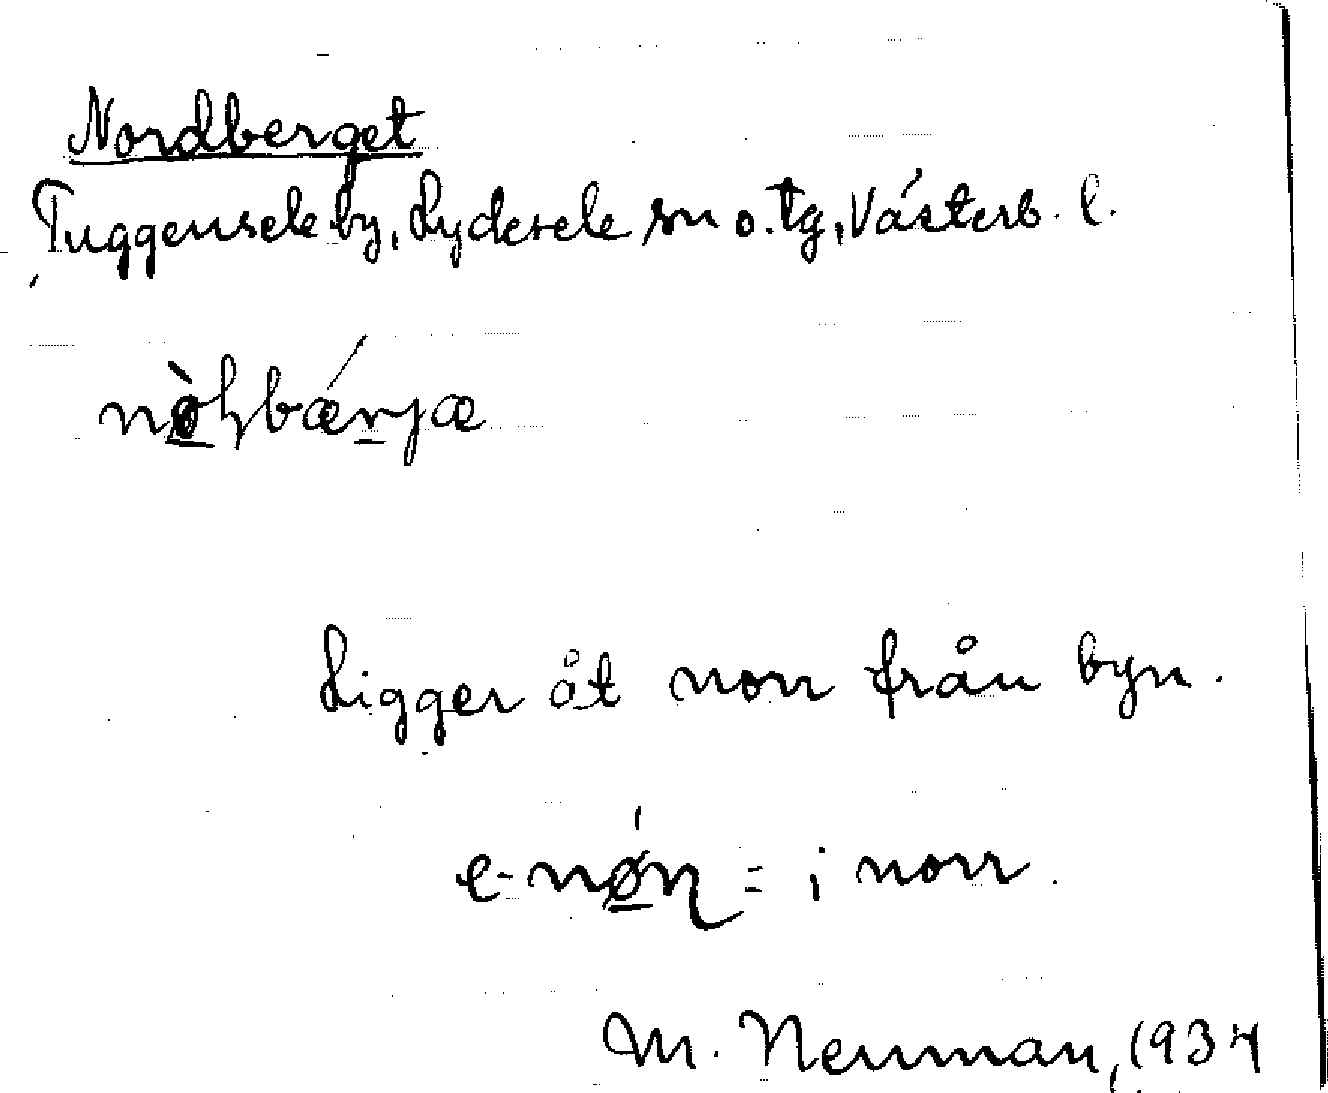 Nordberget
Tuggensele by, Lycksele sn o. tg, Västerb. l.
Ligger åt norr från byn.
= i norr.
M. Neuman, 1934